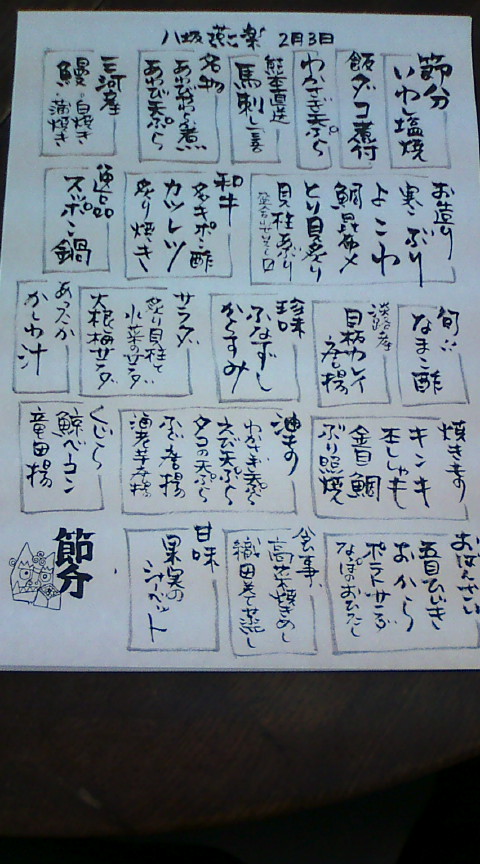 八坂燕楽 2月3日
節分
いわし塩焼
飯ダコ煮付
わかさぎ天ぷら
熊本直送
馬刺し
名物
あなご天ぷら
三河産
鰻 白焼き
蒲焼き
お造り
寒ぶり
よこわ
鯛昆布〆
とり貝炙り
貝柱あぶり
和牛
タタキポン酢
カツレツ
炙り焼き
逸品
スッポン鍋
旬
なまこ酢
淡路産
目板カレイ
唐揚
珍味
ふなずし
からすみ
サラダ
炙り貝柱と
水菜のサラダ
大根梅サラダ
あったか
かしわ汁
焼きもの
キンキ
本ししゃも
金目鯛
ぶり照焼
油もの
わかさぎ天ぷら
えび天ぷら
タコの天ぷら
ふぐ唐揚
海老芋唐揚
くじら
鯨ベーコン
竜田揚
おばんざい
五目ひじき
おから
ポテトサラダ
なっぱのおひたし
食事
高菜焼きめし
甘味
果実の
シャーベット
節分